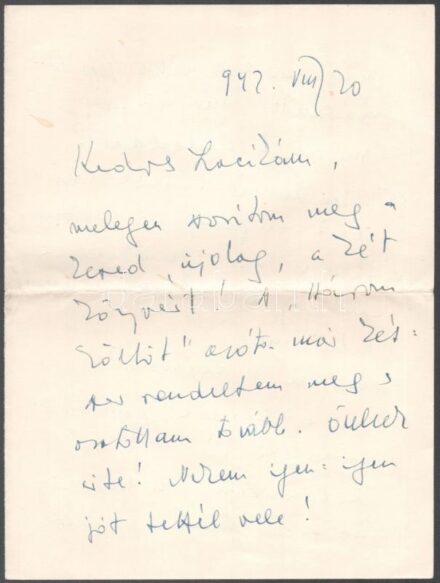 947. VIII/20
Kedves Lacikám,
melegen szorítom meg a
kezed, újolag, a két
könyvért! A „Három
költőt" azóta már két-
szer rendeltem meg s
osztottam tovább.
Nekem igen-igen
jót tettél vele!